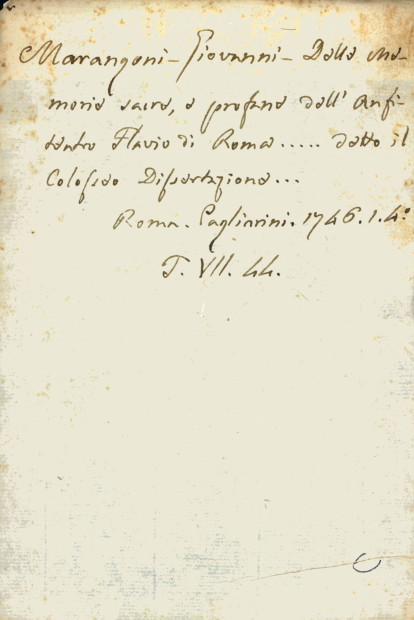 Marangoni - Giovanni - Delle me-
morie sacre, e profane dell' Anfi-
teatro Flavio di Roma ..... detto il
Colosseo Dissertazione...
Roma. Pagliarini. 1746. 1. 4.º
T. VII. 44.